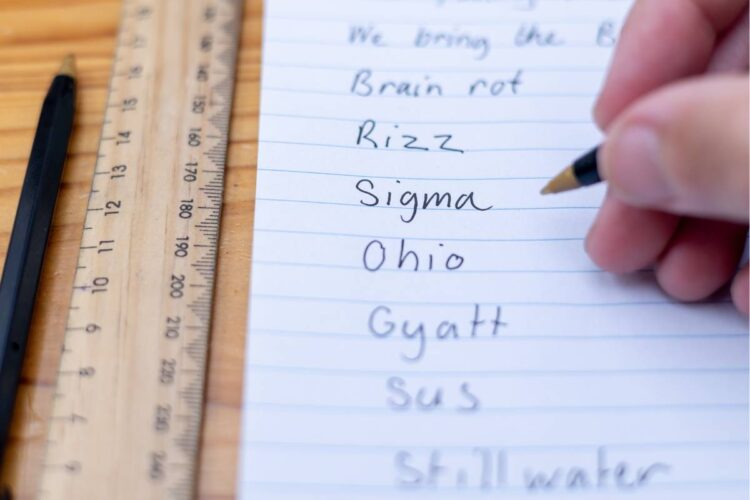 We bring the B
Brain rot
Rizz
Sigma
Ohio
Gyatt
Sus
Still water
17
16
15
14
13
12
11
10
9
8
7
6
140
150
160
170
180
190
200
210
220
230
240